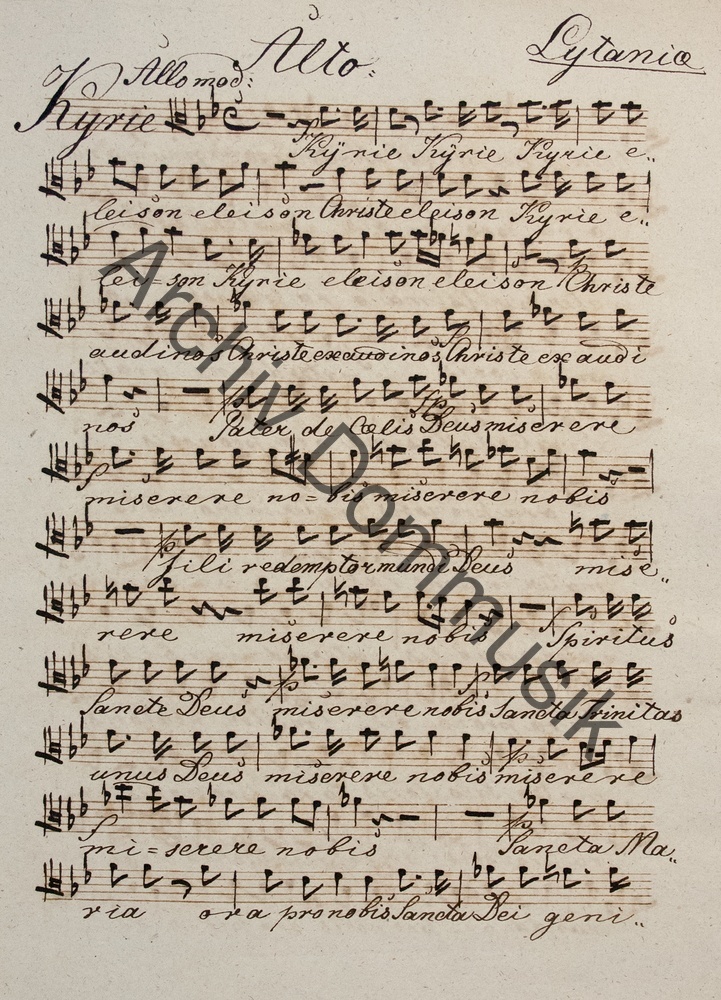 Alto:
Lytaniæ
Allo mod:
Kyrie
Kÿrie Kÿrie Kyrie e..
leison eleison Christe eleison Kyrie e..
lei-son Kyrie eleison eleison Christe
audi nos Christe exaudi nos Christe exaudi
nos Pater de Cœlis Deus miserere
miserere no=bis miserere nobis
fili redemptor mundi Deus mise..
rere miserere nobis Spiritus
Sancte Deus miserere nobis Sancta Trinitas
unus Deus miserere nobis miserere
mi=serere nobis Sancta Ma..
ria ora pro nobis Sancta Dei geni..
Archiv Dommusik